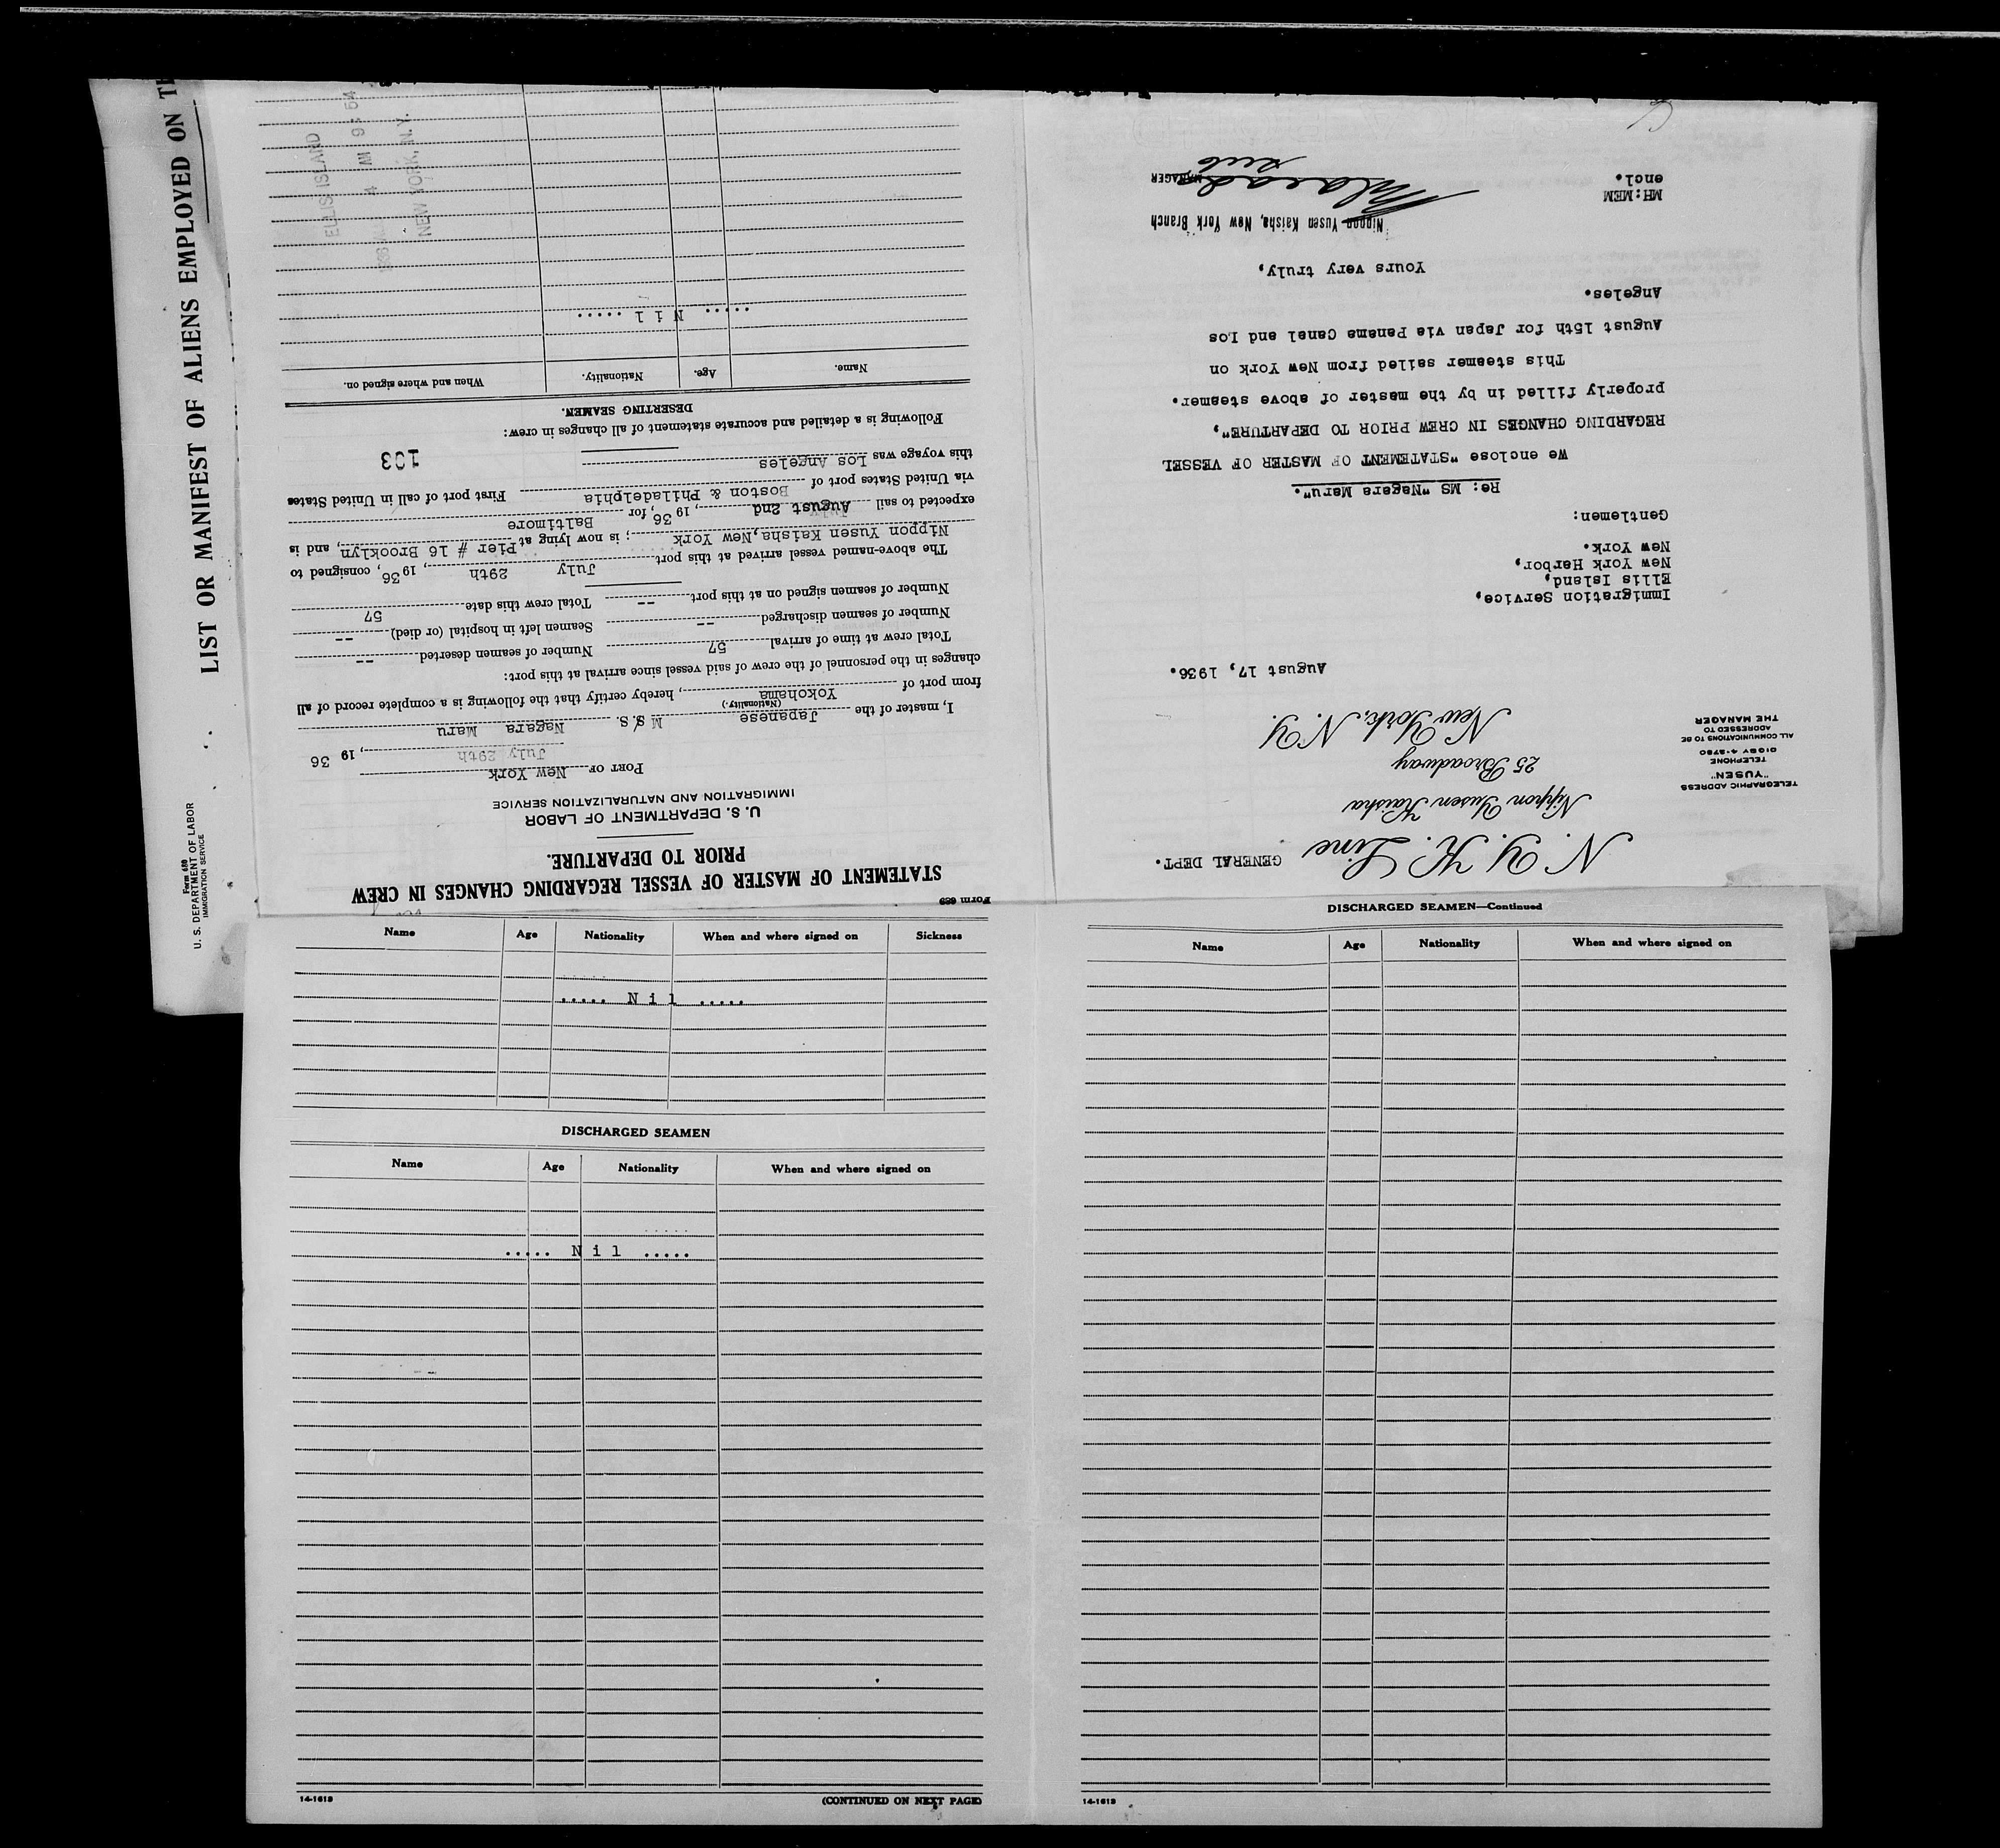 LIST OR MANIFEST OF ALIENS EMPLOYED ON
Form 680
U. S. DEPARTMENT OF LABOR
IMMIGRATION SERVICE
Form 689
STATEMENT OF MASTER OF VESSEL REGARDING CHANGES IN CREW
PRIOR TO DEPARTURE.
U. S. DEPARTMENT OF LABOR
IMMIGRATION AND NATURALIZATION SERVICE
PORT OF New York
July 29th, 19 36
I, master of the Japanese M S.S. Nagara Maru
(Nationality.)
from port of Yokohama, hereby certify that the following is a complete record of all
changes in the personnel of the crew of said vessel since arrival at this port:
Total crew at time of arrival 57 Number of seamen deserted --
Number of seamen discharged -- Seamen left in hospital (or died) --
Number of seamen signed on at this port -- Total crew this date 57
The above-named vessel arrived at this port July 29th, 19 36, consigned to
Nippon Yusen Kaisha, New York; is now lying at Pier # 16 Brooklyn, and is
expected to sail August 2nd, 19 36, for Baltimore
via United States port of Boston & Philadelphia First port of call in United States
this voyage was Los Angeles 103
Following is a detailed and accurate statement of all changes in crew:
DESERTING SEAMEN.
Name. Age. Nationality. When and where signed on.
..... Nil .....
ELLIS ISLAND
4 AM 9 54
NEW YORK, N.Y.
N. Y. K. Line GENERAL DEPT.
Nippon Yusen Kaisha
25 Broadway
New York, N. Y.
TELEGRAPHIC ADDRESS
"YUSEN"
TELEPHONE
DIGBY 4-2780
ALL COMMUNICATIONS TO BE
ADDRESSED TO
THE MANAGER
August 17, 1936.
Immigration Service,
Ellis Island,
New York Harbor,
New York.
Gentlemen:
Re: MS "Nagara Maru".
We enclose "STATEMENT OF MASTER OF VESSEL
REGARDING CHANGES IN CREW PRIOR TO DEPARTURE",
properly filled in by the master of above steamer.
This steamer sailed from New York on
August 15th for Japan via Panama Canal and Los
Angeles.
Yours very truly,
Nippon Yusen Kaisha, New York Branch
MANAGER
MH:MEM
encl.
Name Age Nationality When and where signed on Sickness
..... Nil .....
DISCHARGED SEAMEN
Name Age Nationality When and where signed on
..... Nil .....
14-1613 (CONTINUED ON NEXT PAGE)
DISCHARGED SEAMEN—Continued
Name Age Nationality When and where signed on
14-1613